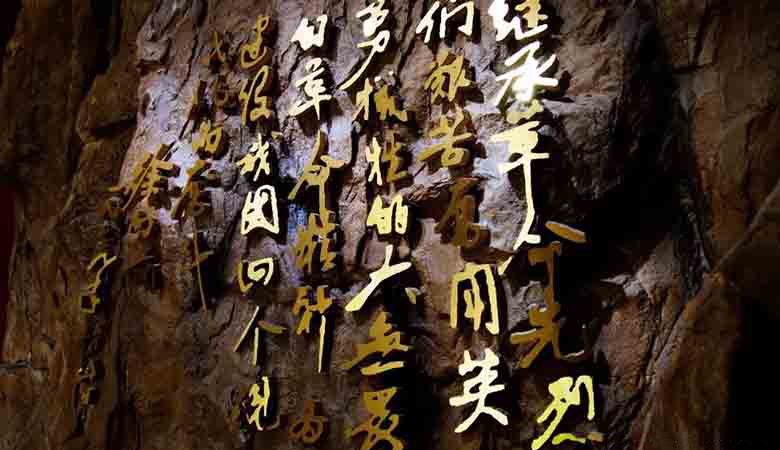 继承革命先烈
们艰苦用英
勇牺牲的大无畏
的革命精神为
建设我国四个现
代化而奋斗
徐